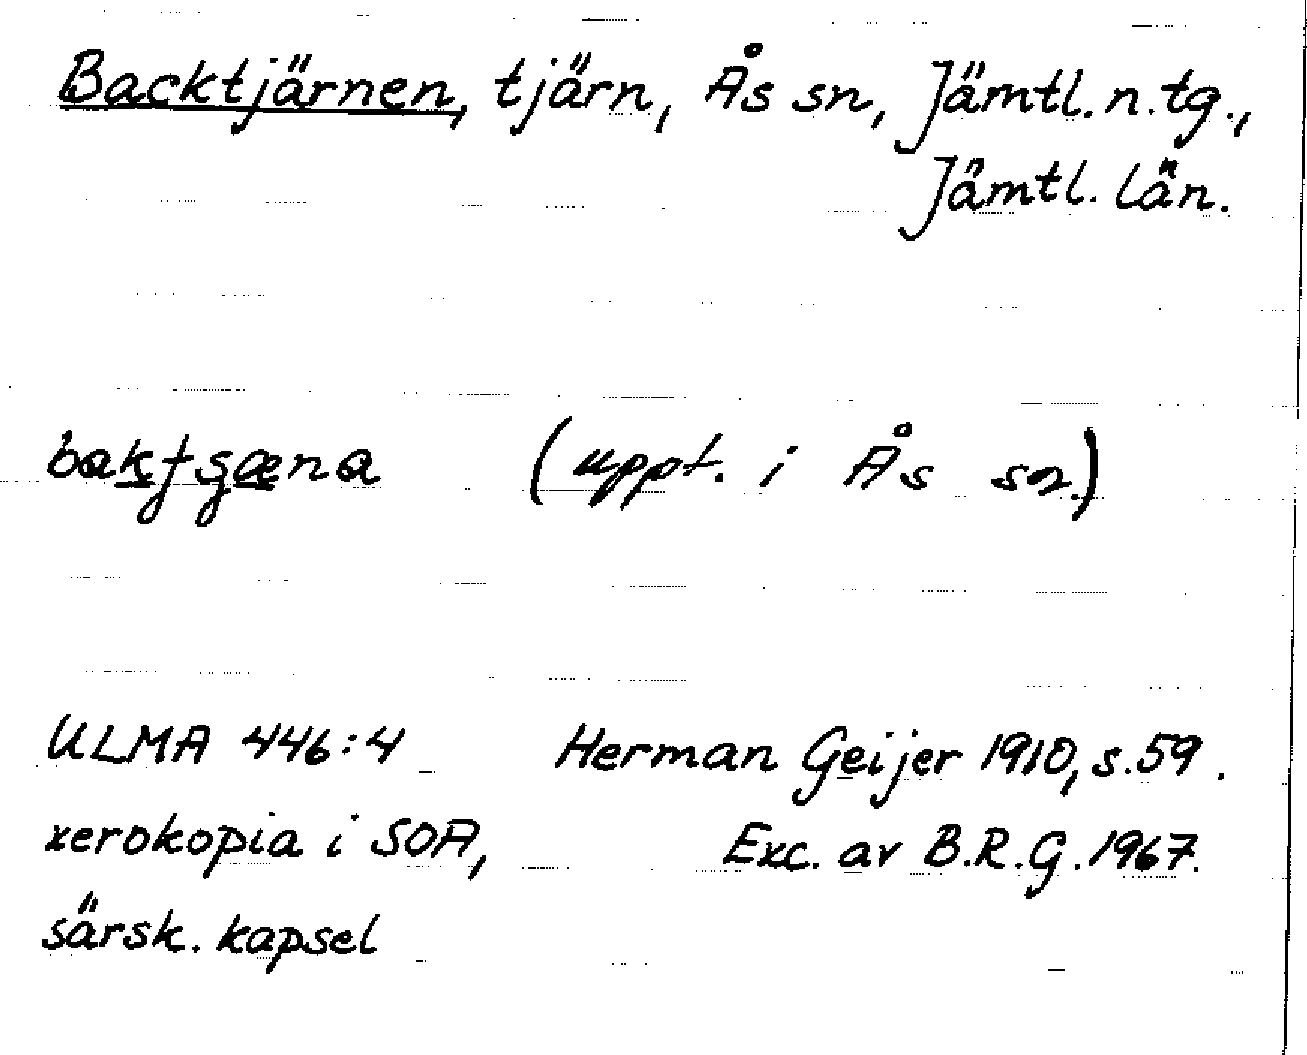 Backtjärnen, tjärn, Ås sn, Jämtl. n. tg.,
Jämtl. län.
(uppt. i Ås sn.)
ULMA 446:4 Herman Geijer 1910, s. 59.
xerokopia i SOA, Exc. av B.R.G. 1967.
särsk. kapsel